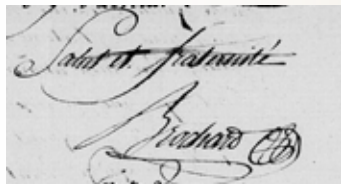 Salut et fraternité
Brochard